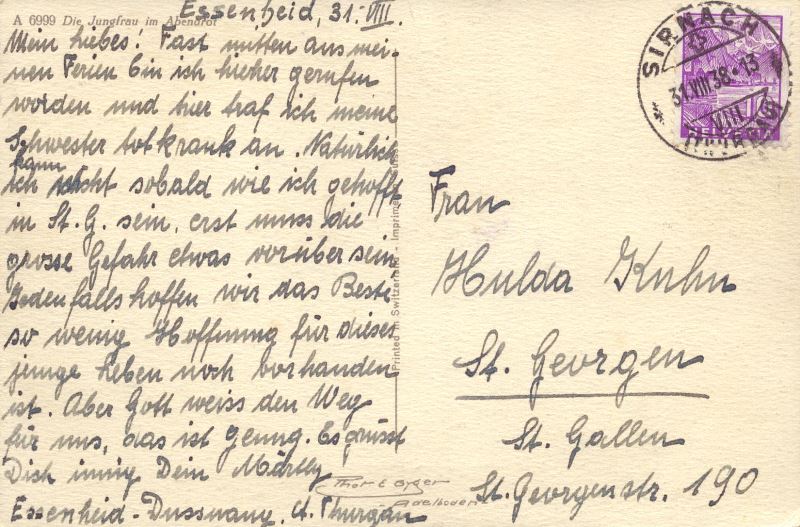 A 6999 Die Jungfrau im Abendrot
Essenheid, 31. VIII.
Mein liebes! Fast mitten aus mei-
nen Ferien bin ich hieher gerufen
worden und hier traf ich meine
Schwester totkrank an. Natürlich
kann
ich nicht sobald wie ich gehofft
in St. G. sein, erst muss die
grosse Gefahr etwas vorüber sein
Jedenfalls hoffen wir das Beste
so wenig Hoffnung für dieses
junge Leben noch vorhanden
ist. Aber Gott weiss den Weg
für uns, das ist genug. Es grüsst
Dich innig Dein
Essenheid-Dussnang, Kt. Thurgau
Printed in Switzerland - Imprimé
Adelboden
SIRNACH
31.VIII.38.-13
VIII
(THURGAU)
HELVETIA
Frau
Hulda Kuhn
St. Georgen
St. Gallen
St. Georgenstr. 190